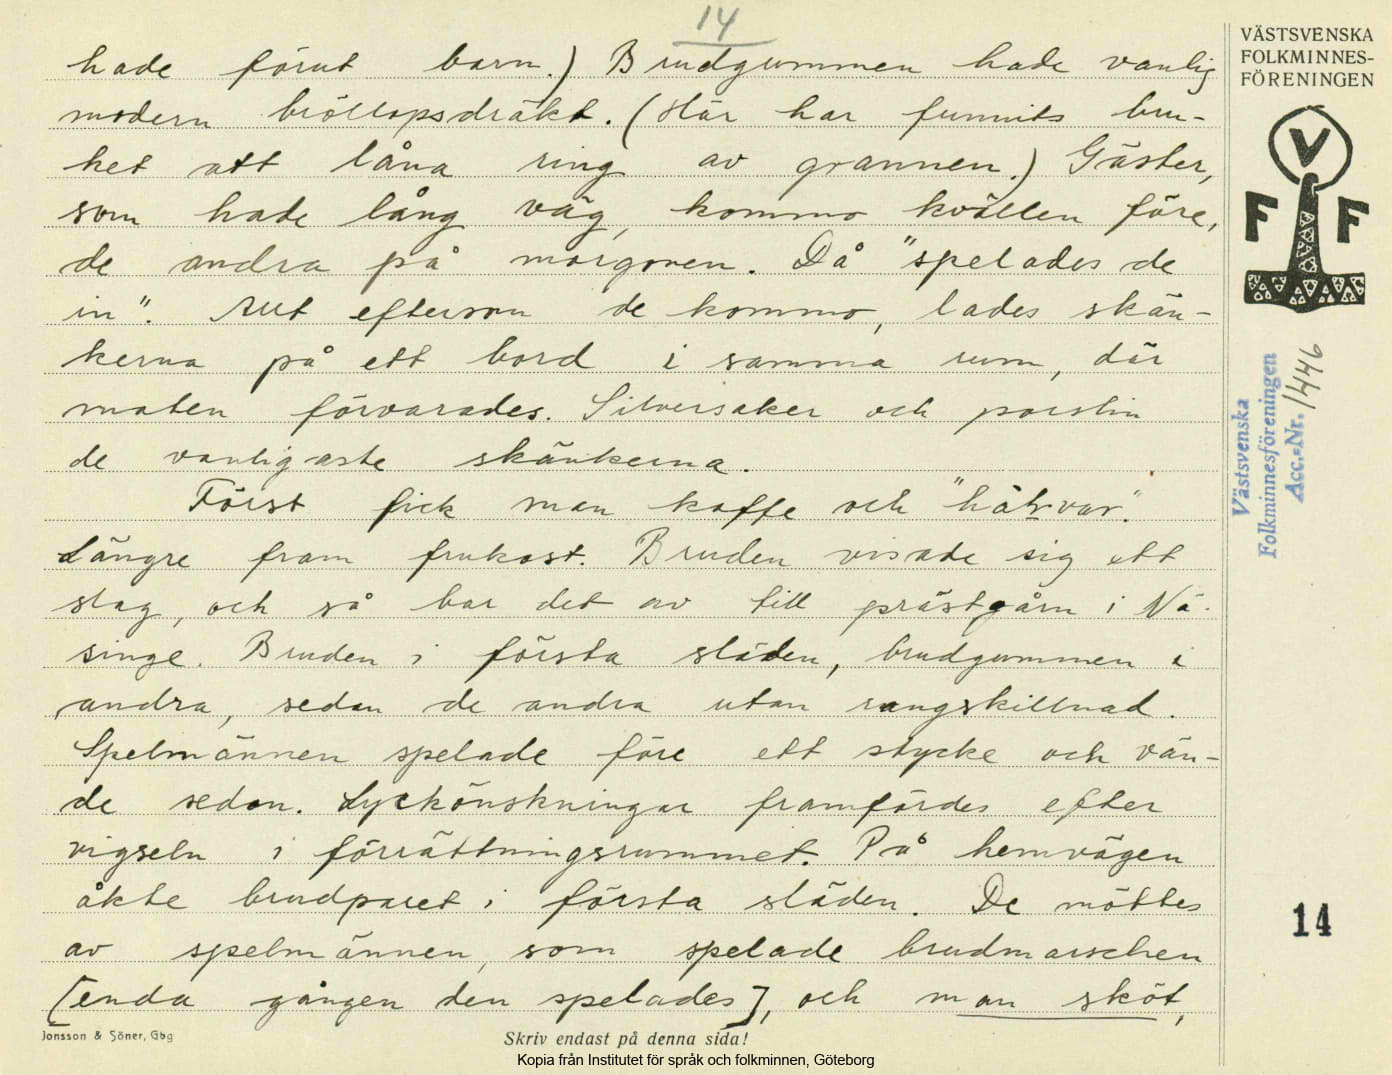 14
hade förut barn.) Brudgummen hade vanlig
modern bröllopsdräkt. (Här har funnits bru-
ket att låna ring av grannen.) Gäster,
som hade lång väg, kommo kvällen före,
de andra på morgonen. Då "spelades de
in". Allt eftersom de kommo, lades skän-
kerna på ett bord i samma rum, där
maten förvarades. Silversaker och porslin
de vanligaste skänkerna.
Först fick man kaffe och
Längre fram frukost. Bruden visade sig ett
slag, och så bar det av till prästgårn i Nä-
singe. Bruden i första släden, brudgummen i
andra, sedan de andra utan rangskillnad.
Spelmännen spelade före ett stycke och vän-
de sedan. Lyckönskningar framfördes efter
vigseln i förrättningsrummet. På hemvägen
åkte brudparet i första släden. De möttes
av spelmännen, som spelade brudmarschen
[enda gången den spelades], och man sköt,
Jonsson & Söner, Gbg
Skriv endast på denna sida!
Kopia från Institutet för språk och folkminnen, Göteborg
VÄSTSVENSKA
FOLKMINNES-
FÖRENINGEN
V
F F
Västsvenska
Folkminnesföreningen
Acc.-Nr. 1446
14